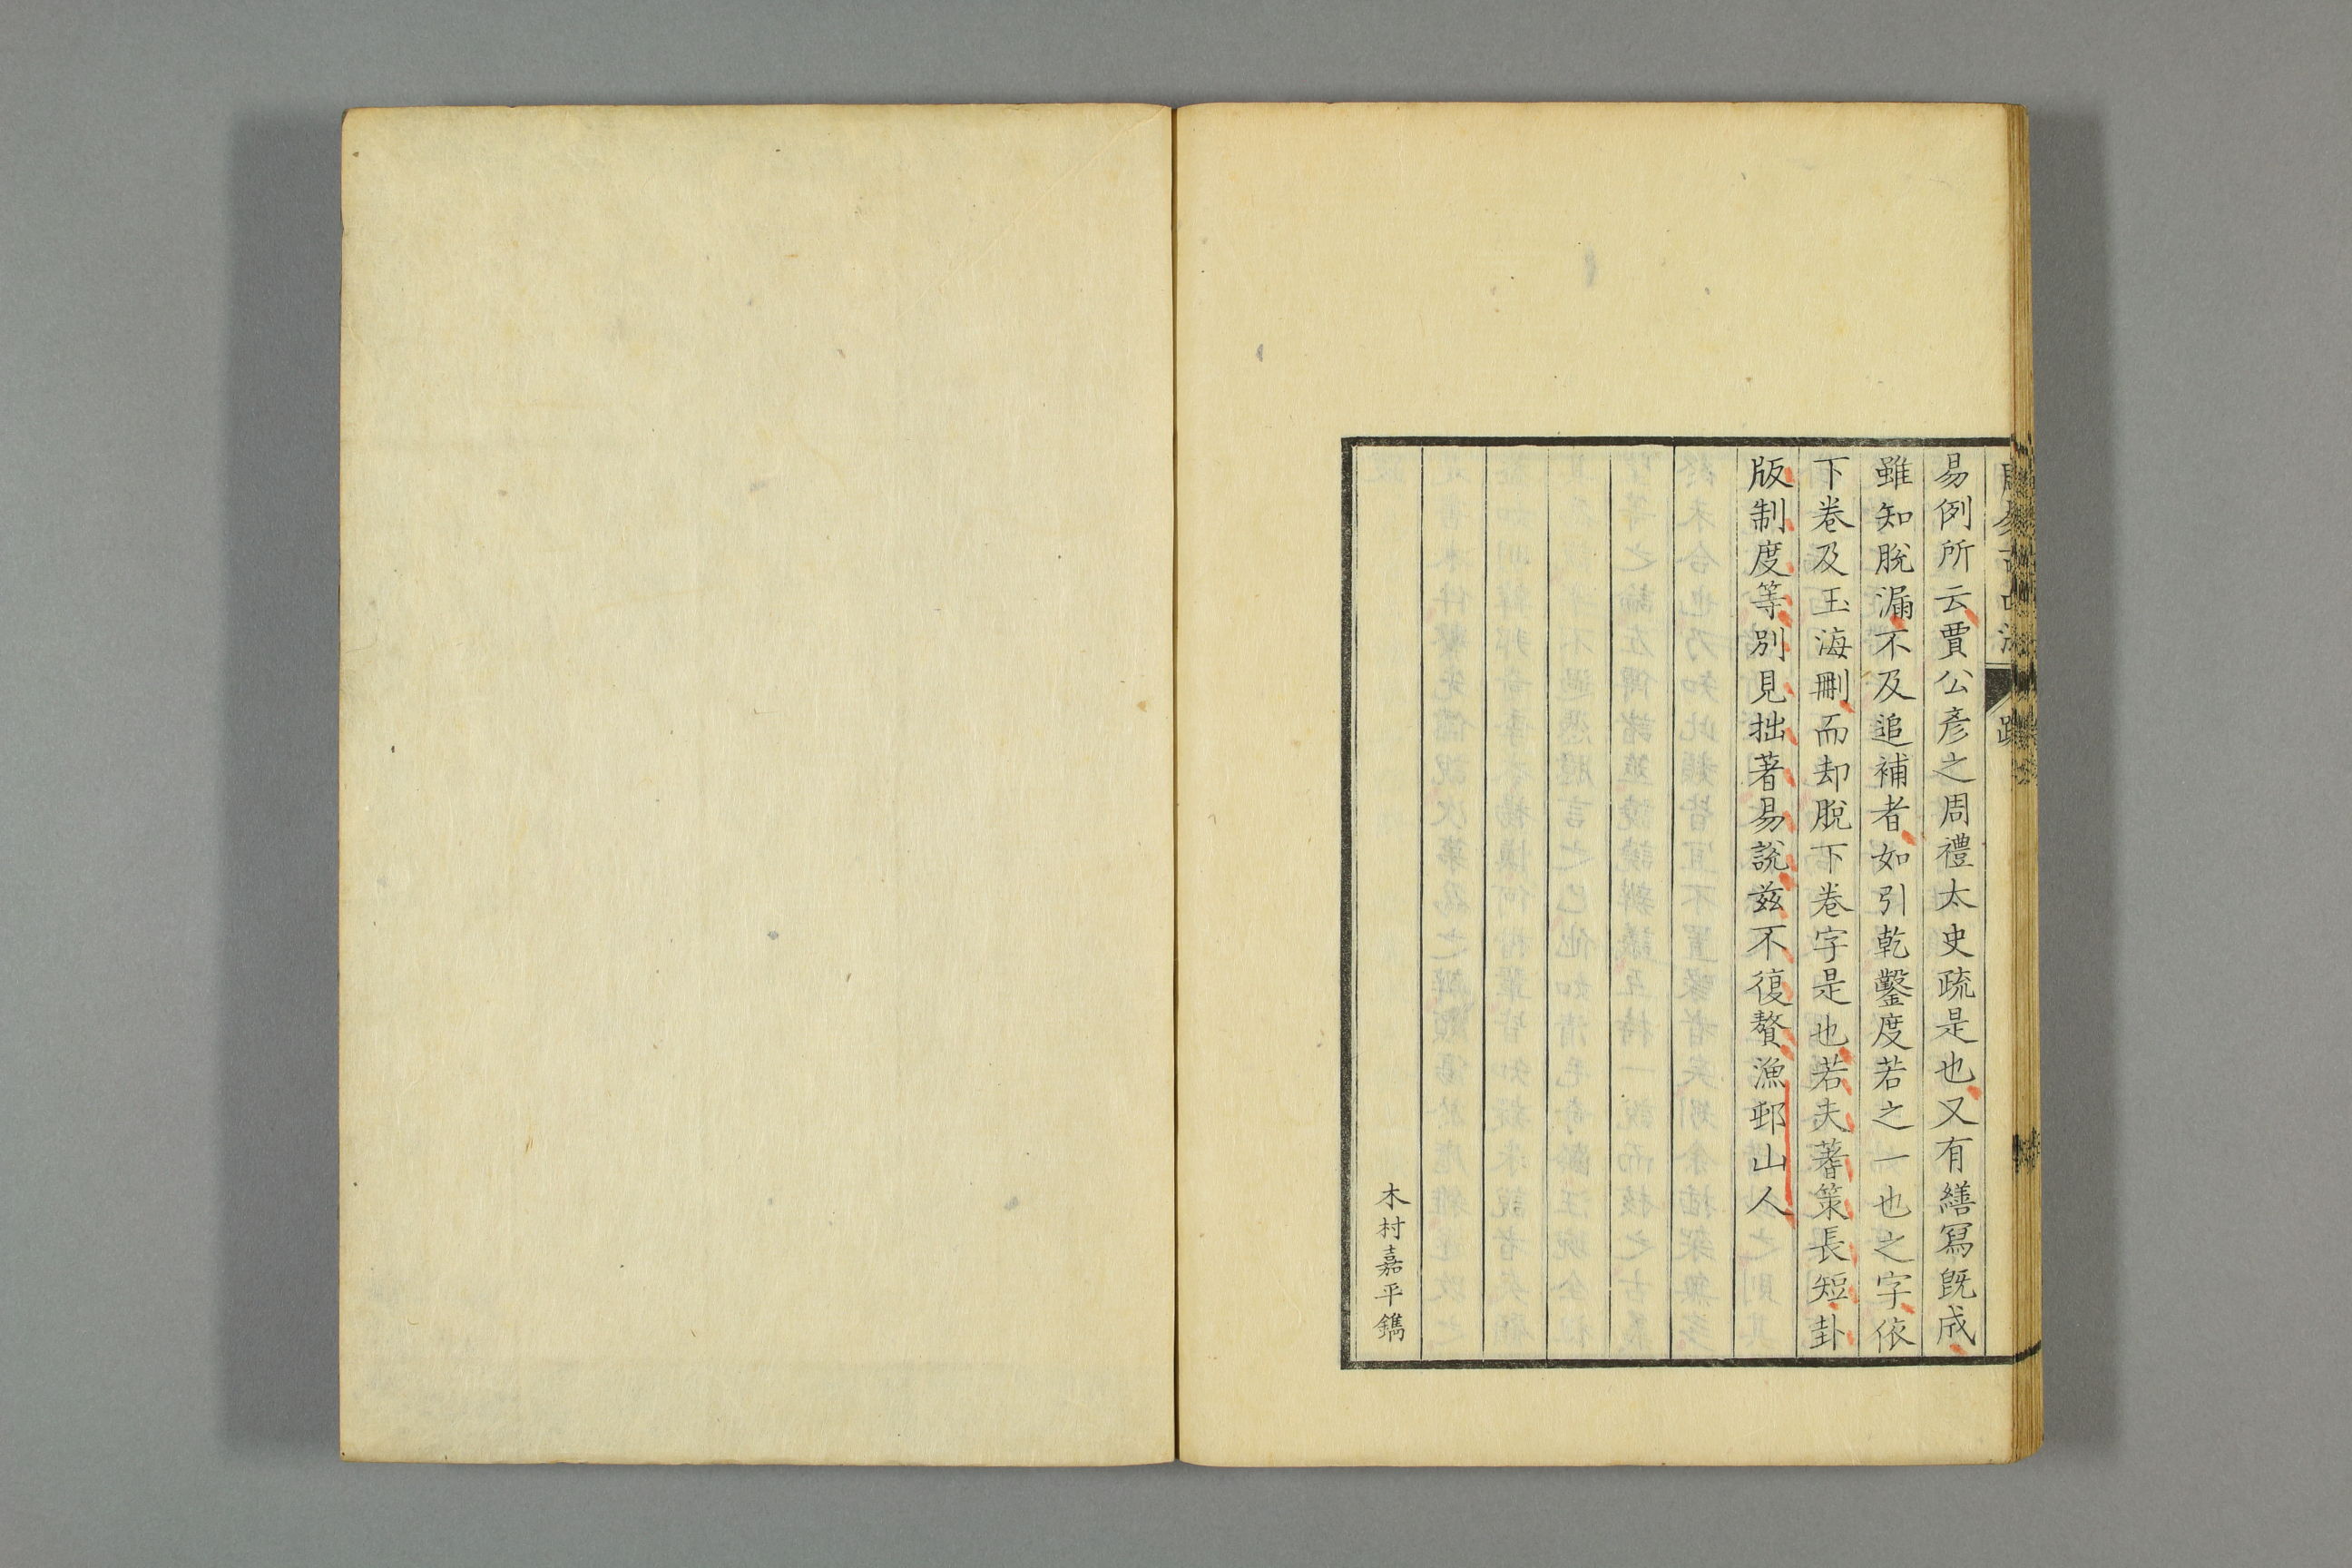 易例所云賈公彦之周禮太史疏是也又有繕寫旣成
雖知脫漏不及追補者如引乾鑿度若之一也之字依
下卷及玉海刪而却脫下卷字是也若夫蓍策長短卦
版制度等別見拙著易說茲不復贅漁邨山人
木村嘉平鐫